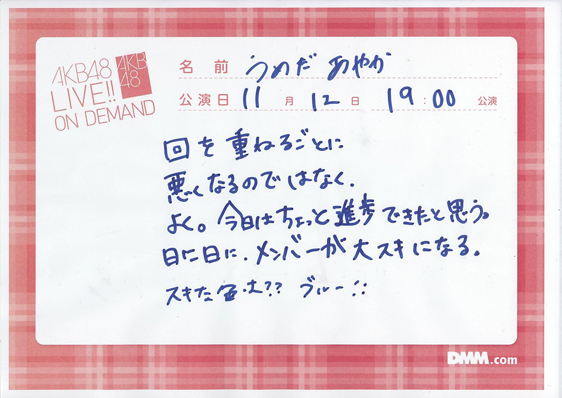 AKB48
LIVE!!
ON DEMAND
AKB
48
名前 うめだ あやか
公演日 11月12日 19:00 公演
回を重ねるごとに
悪くなるのではなく、
よく。今日はちょっと進歩できたと思う。
日に日に、メンバーが大スキになる。
スキな色は?? ブルー!!
DMM.com